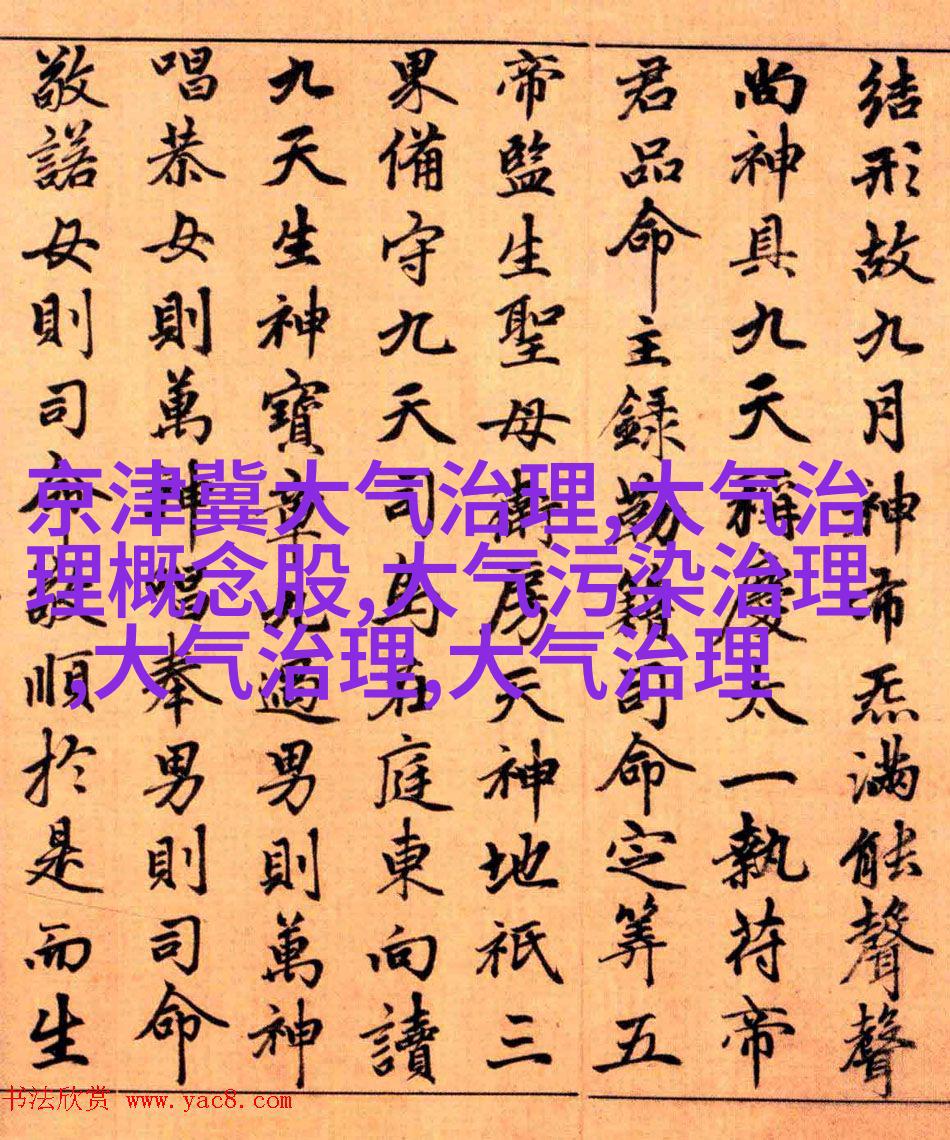 結形故九月神布炁滿能聲聲
尚神具九天稱慶太一執符帝
君品命主錄勒籍司命定筭五
帝監生聖母衛房天神地祇三
果備守九天司馬在庭東向讀
九天生神寶章九過男則萬神
唱恭女則萬神唱奉男則司命
敬諾女則司命敬順於是而生
京津冀大气治理,大气治
理概念股,大气污染治理
,大气治理,大气治理
书法欣赏 www.yac8.com